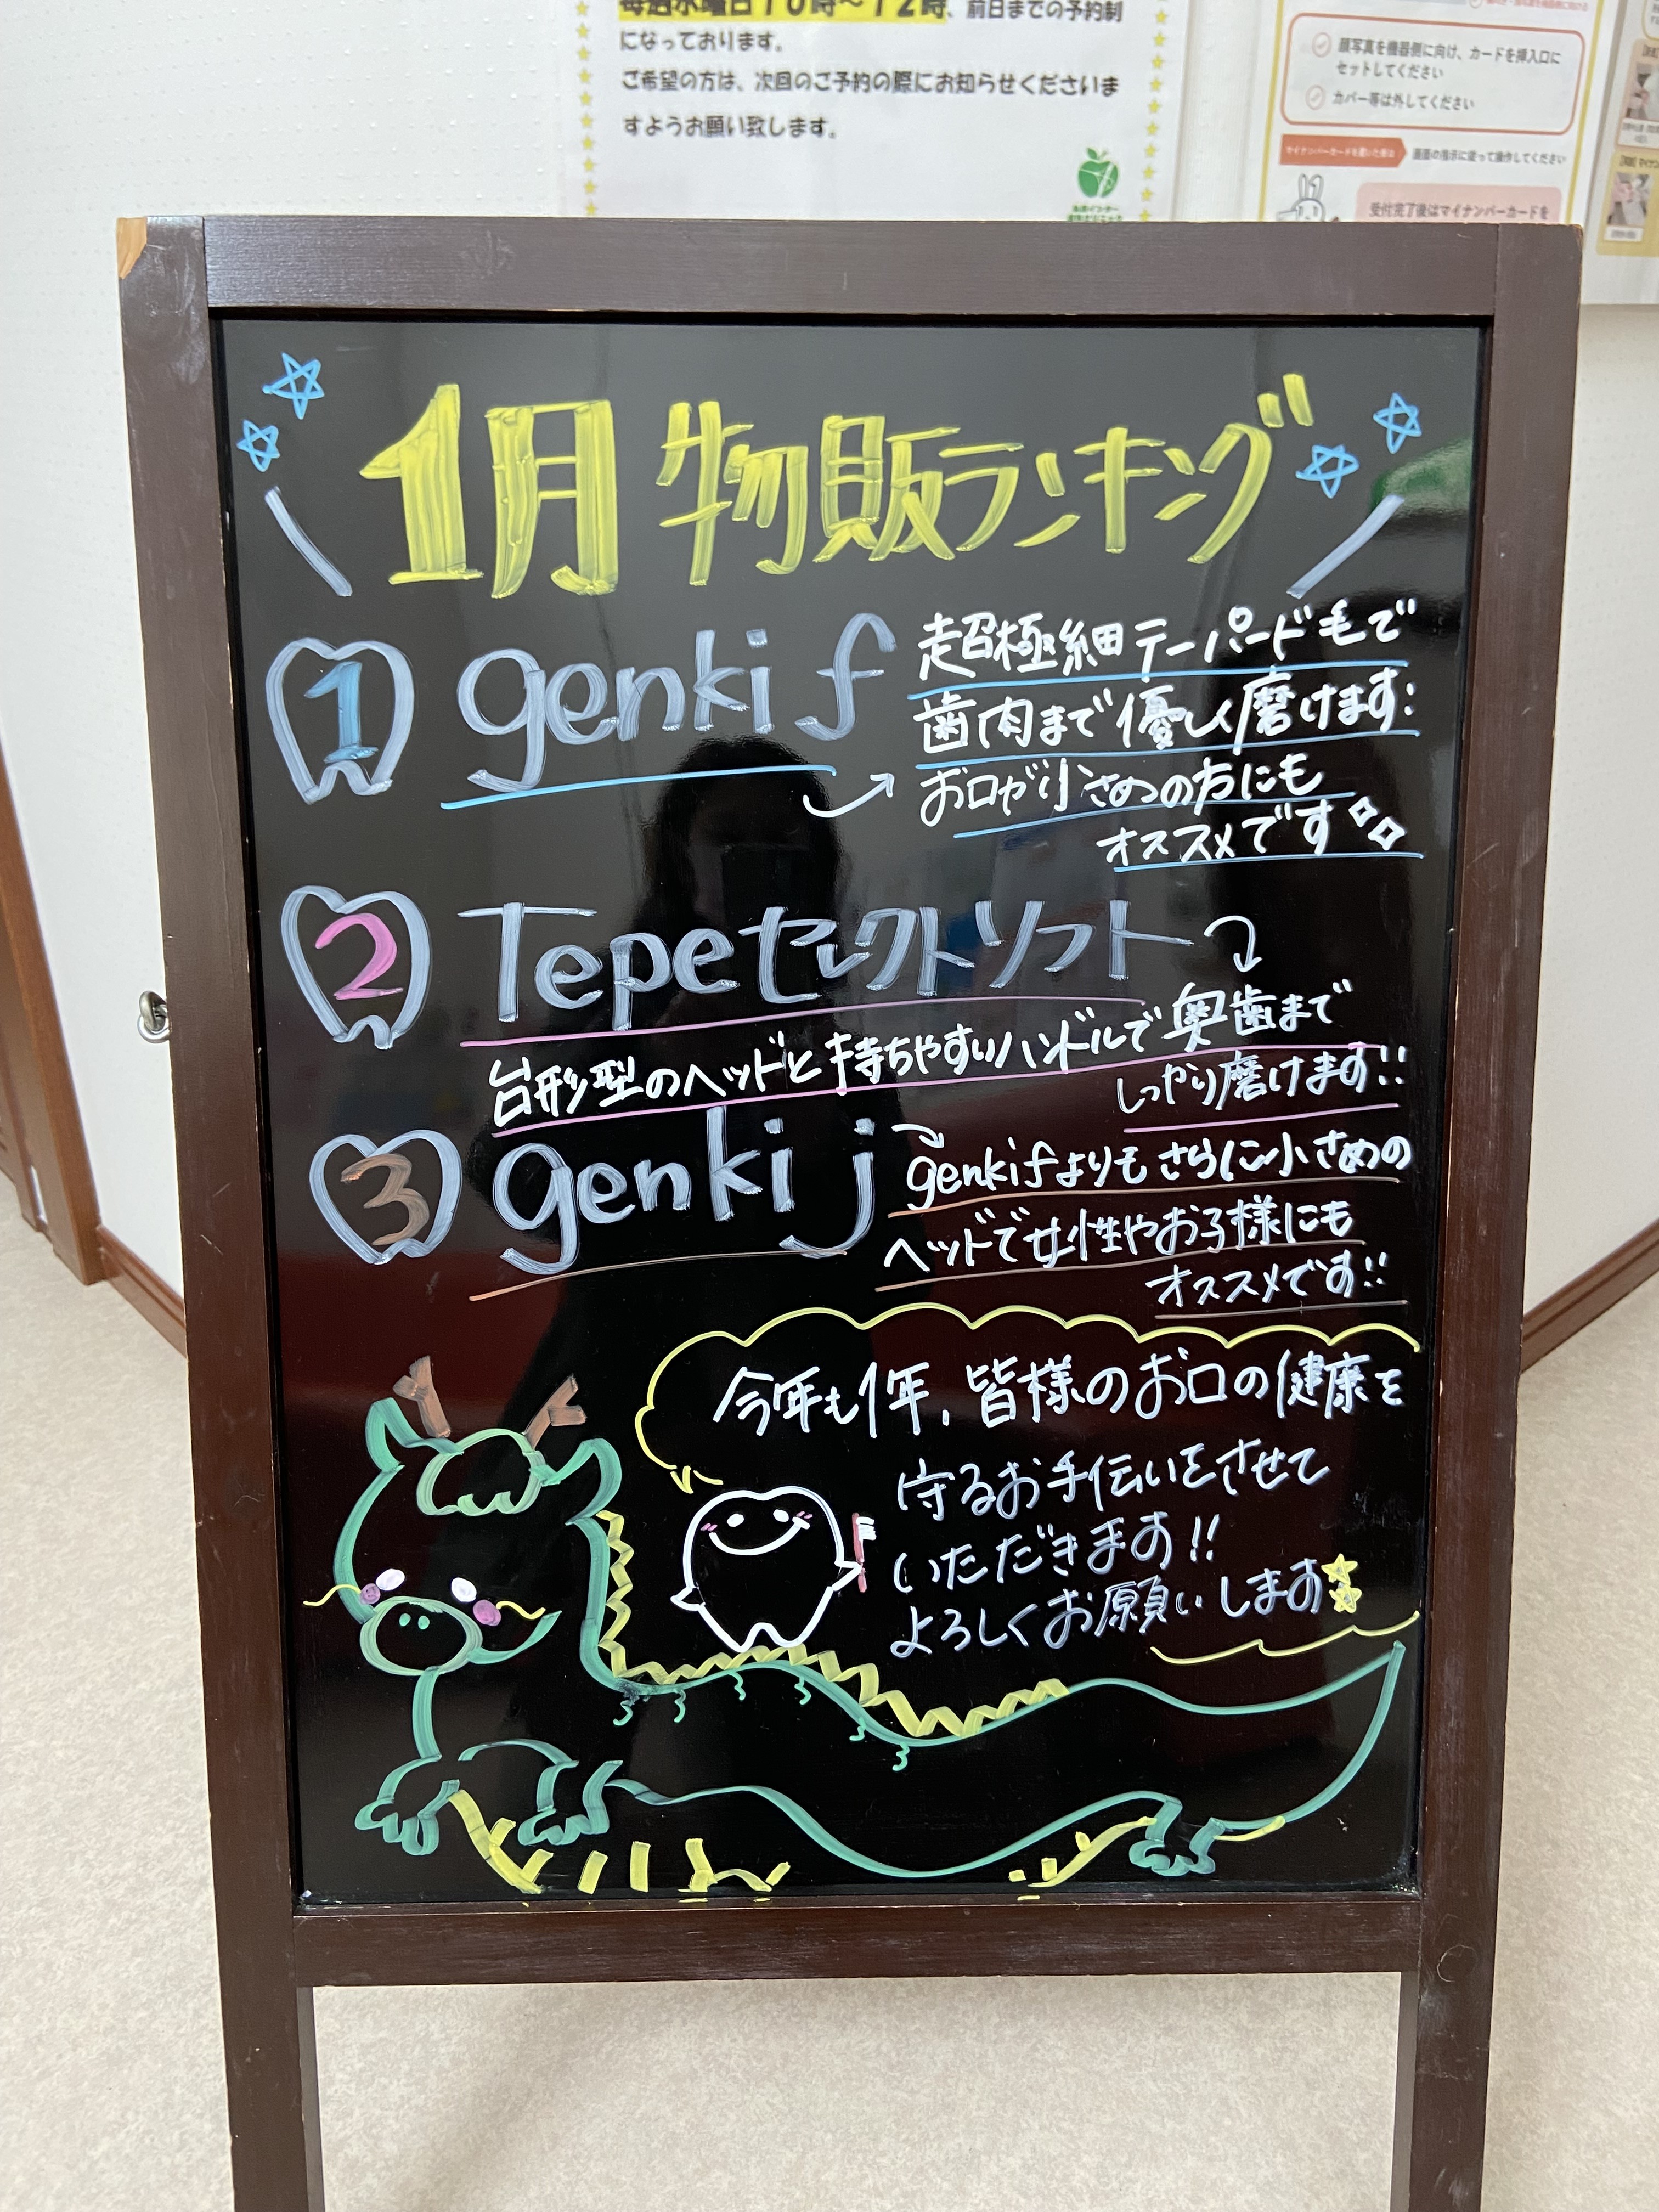 毎週水曜日10時～12時、前日までの予約制
になっております。
ご希望の方は、次回のご予約の際にお知らせくださいま
すようお願い致します。
顔写真を機器側に向け、カードを挿入口に
セットしてください
カバー等は外してください
マイナンバーカードを置いた後は
画面の指示に従って操作してください
受付完了後はマイナンバーカードを
1月 物販ランキング
1 genki f
超極細テーパード毛で
歯肉まで優しく磨けます:
お口が小さめの方にも
オススメです
2 Tepeセレクトソフト
台形型のヘッドと持ちやすいハンドルで奥歯まで
しっかり磨けます!!
3 genki j
genki fよりもさらに小さめの
ヘッドで女性やお子様にも
オススメです!!
今年も1年、皆様のお口の健康を
守るお手伝いをさせて
いただきます!!
よろしくお願いします